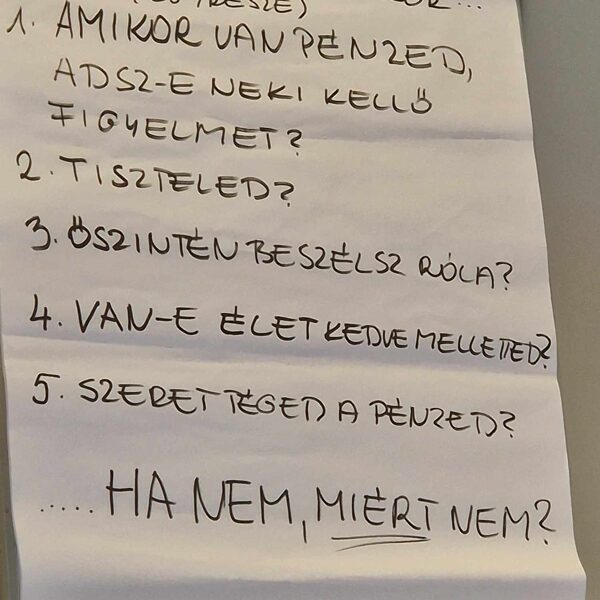 1. AMIKOR VAN PÉNZED,
ADSZ-E NEKI KELLŐ
FIGYELMET?
2. TISZTELED?
3. ŐSZINTÉN BESZÉLSZ RÓLA?
4. VAN-E ÉLETKEDVE MELLETTED?
5. SZERET TÉGED A PÉNZED?
..... HA NEM, MIÉRT NEM?